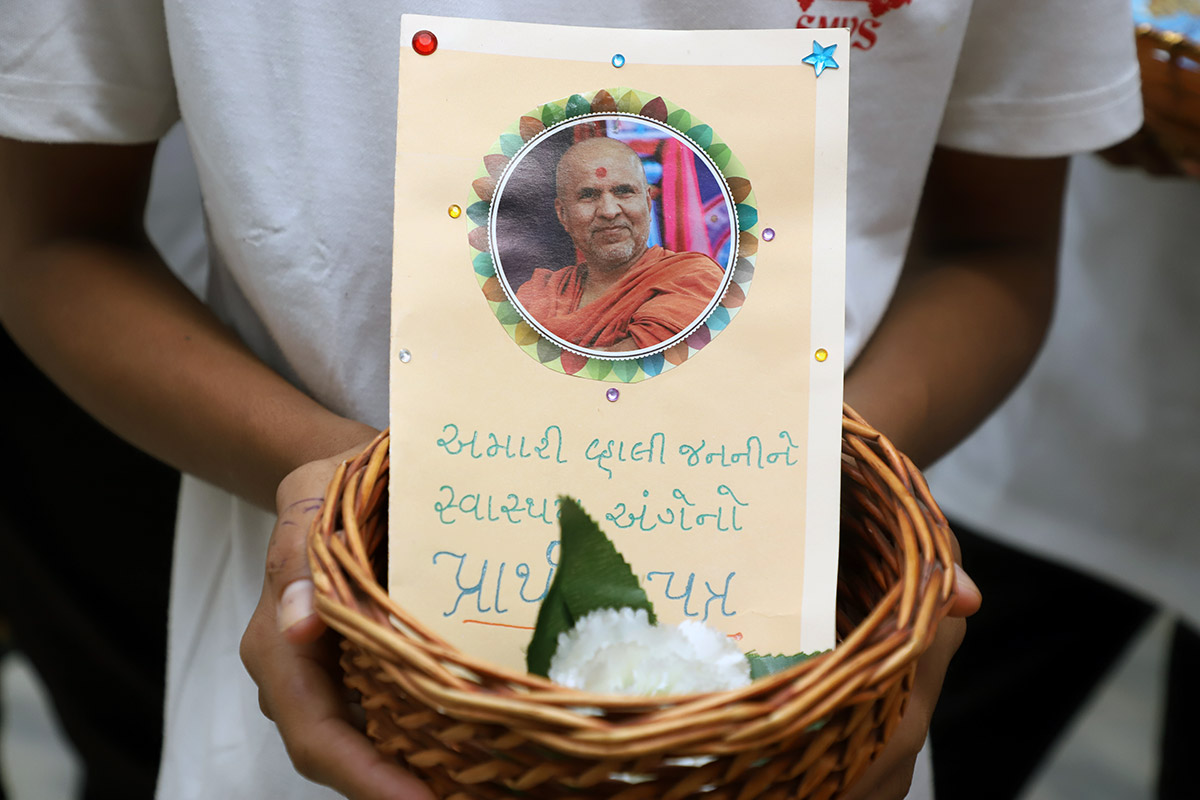 SMVS
અમારી વ્હાલી જનનીને
સ્વાસ્થ્ય અંગેનો
પત્ર